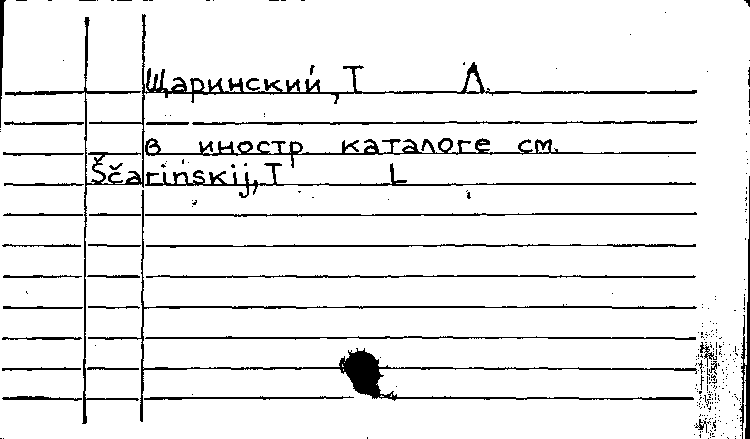 Щаринский, Т Л.
в иностр каталоге см.
Ščarinskij, T L